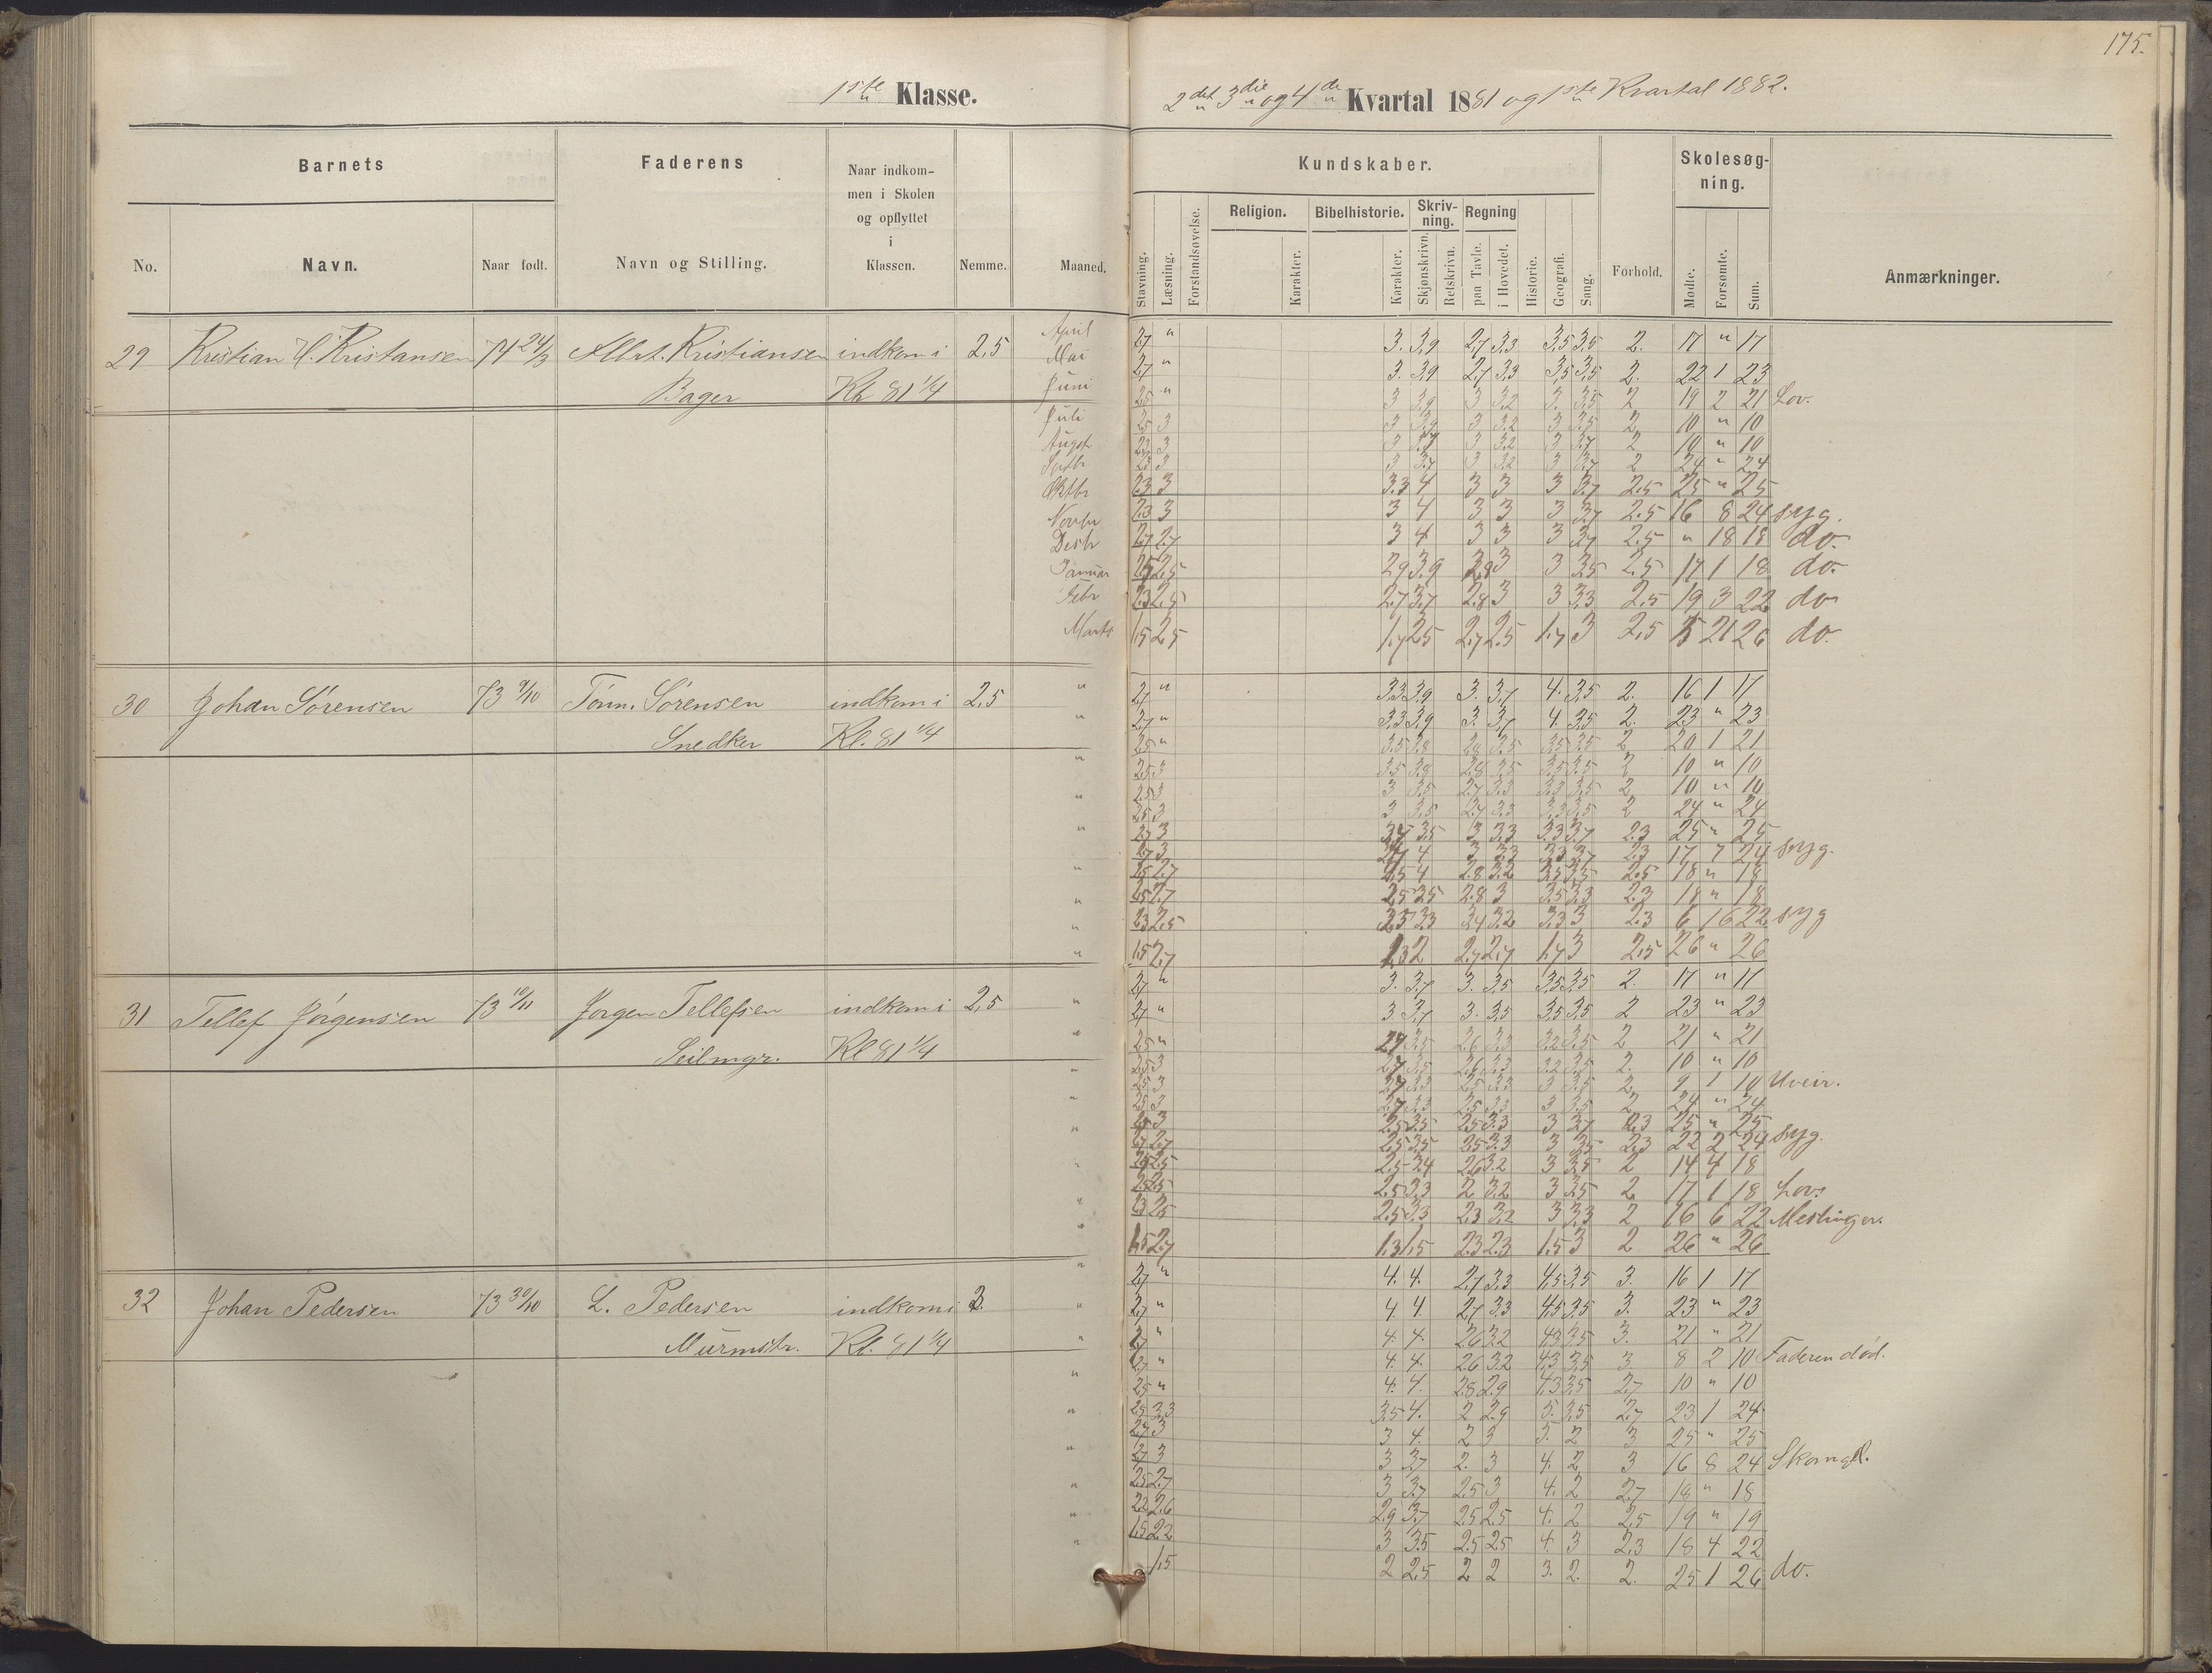 175.
1ste Klasse.
2det 3die og 4de Kvartal 1881 og 1ste Kvartal 1882.
Barnets
Faderens
Naar indkom-
men i Skolen
og opflyttet
i
Klassen.
No.
Navn.
Naar født.
Navn og Stilling.
Nemme.
Maaned.
Kundskaber.
Skolesøg-
ning.
Religion.
Bibelhistorie.
Skriv-
ning.
Regning
Stavning.
Læsning.
Forstandsøvelse.
Karakter.
Karakter.
Skjønskrivn.
Retskrivn.
paa Tavle.
i Hovedet.
Historie.
Geografi.
Sang.
Forhold.
Møde.
Forsømte.
Sum.
Anmærkninger.
29 Kristian Kristansen 74 24/3 Kristiansen indkom i 2,5
Bager Kl 81 1/4
April 2,7 " 3. 3,9 2,7 3,3 3,5 3,5 2. 17 " 17
Mai 2,7 " 3. 3,9 2,7 3,3 3,5 3,5 2. 22 1 23
Juni 2,5 " 3 3,9 3 3,2 3. 3,5 2 19 2 21 Lov.
Juli 2,5 3 3 3,9 3 3,2 3 3,5 2 10 " 10
August 3 3 3 3,2 3 3,7 2 10 " 10
Septbr 3 3 3,7 3 3,2 3 3,7 2 24 " 24
Oktbr 2,3 3 3,3 4 3 3 3 3,7 2,5 25 " 25
Novbr 2,3 3 3 4 3 3 3 3,7 2,5 16 8 24 syg.
Desbr 2,7 2,7 3 4 3 3 3 3,7 2,5 " 18 18 do.
Januar 2,5 2,9 3,9 2,9 3 3 3,5 2,5 17 1 18 do.
Febr 2,3 2,5 2,7 3,7 2,8 3 3 3,3 2,5 19 3 22 do
Marts 1,5 2,5 1,7 2,5 2,7 2,5 1,7 3 2,5 5 21 26 do.
30 Johan Sørensen 73 9/10 Tønn. Sørensen indkom i 2,5
Snedker Kl. 81 1/4
2,7 " 3,3 3,9 3. 3,7 4. 3,5 2. 16 1 17
2,7 " 3,3 3,9 3. 3,7 4. 3,5 2. 23 " 23
2,5 " 3,5 3,8 2,8 3,5 3,5 3,5 2 20 1 21
2,5 3 3,5 3,8 2,8 3,5 3,5 3,5 2 10 " 10
2,5 3 3 3,5 2,7 3,3 3,3 3,5 2 10 " 10
2,5 3 3 3,5 2,7 3,3 3,3 3,5 2 24 " 24
2,7 3 3,5 3 3,3 3,3 3,7 2,3 25 " 25
2,7 3 4 3 3,3 3,3 3,7 2,3 17 7 24 syg.
2,5 2,7 2,5 4 2,8 3,2 3,5 3,5 2,5 18 " 18
2,7 2,5 3,5 2,8 3 3,5 3,3 2,3 18 " 18
2,3 2,5 2,5 3,3 3,4 3,2 3,3 3 2,3 6 16 22 syg
1,5 2,7 1,3 2 2,7 2,7 1,7 3 2,5 26 " 26
31 Tellef Jørgensen 73 10/11 Jørgen Tellefsen indkom i 2,5
Seilmgr. Kl 81 1/4
2,7 " 3. 3,7 3. 3,5 3,5 3,5 2. 17 " 17
2,7 " 3 3,7 3. 3,5 3,5 3,5 2 23 " 23
2,5 " 2,7 3,5 2,6 3,3 3,2 3,5 2 21 " 21
2,5 3 2,7 3,5 2,6 3,3 3,2 3,5 2. 10 " 10
2,5 3 2,7 3,3 2,5 3,3 3 3,5 2, 9 1 10 Uveir.
2,5 3 2,7 3,3 2,5 3,3 3 3,5 2 24 " 24
3 2,5 3,5 2,5 3,3 3 3,7 2,3 25 " 25
2,7 2,7 2,5 3,5 2,5 3,3 3 3,5 2,3 22 2 24 syg.
2,5 2,5 3,4 2,6 3,2 3 3,5 2 14 4 18
2,5 2,5 2,5 3,3 2 3,2 3 3,5 2 17 1 18 Lov.
2,3 2,5 2,5 3,3 2,3 3,2 3 3,3 2 16 6 22 Meslinger.
1,5 2,7 1,3 1,5 2,3 2,3 1,5 3 2 26 " 26
32 Johan Pedersen 73 30/10 L. Pedersen indkom i 2.
Murmstr. Kl. 81 1/4
2,7 " 4. 4. 2,7 3,3 4,5 3,5 3. 16 1 17
2,7 " 4. 4. 2,7 3,3 4,5 3,5 3. 23 " 23
2,7 " 4. 4. 2,6 3,2 4,3 3,5 3. 21 " 21
2,7 " 4. 4. 2,6 3,2 4,3 3,5 3. 8 2 10 Faderen død.
2,5 " 4. 4. 2,8 2,9 4,3 3,5 2,7 10 " 10
2,5 3,3 3,5 4. 2 2,9 5. 3,5 2,7 23 1 24
2,7 3 3 4. 2 3 3. 2 3 25 " 25
2,7 3 3 3,7 2. 3 4. 2 3 16 8 24 Skomgl.
2,5 2,7 3 3,7 2,5 3 4. 2 2,7 18 " 18
2,2 2,6 2,9 3,7 2,5 2,5 4. 2 2,5 19 " 19
1,5 2,2 3 3,5 2,5 2,5 4. 3 2,3 18 4 22
1,5 2 2,5 2 2 3. 2. 2. 25 1 26 do.